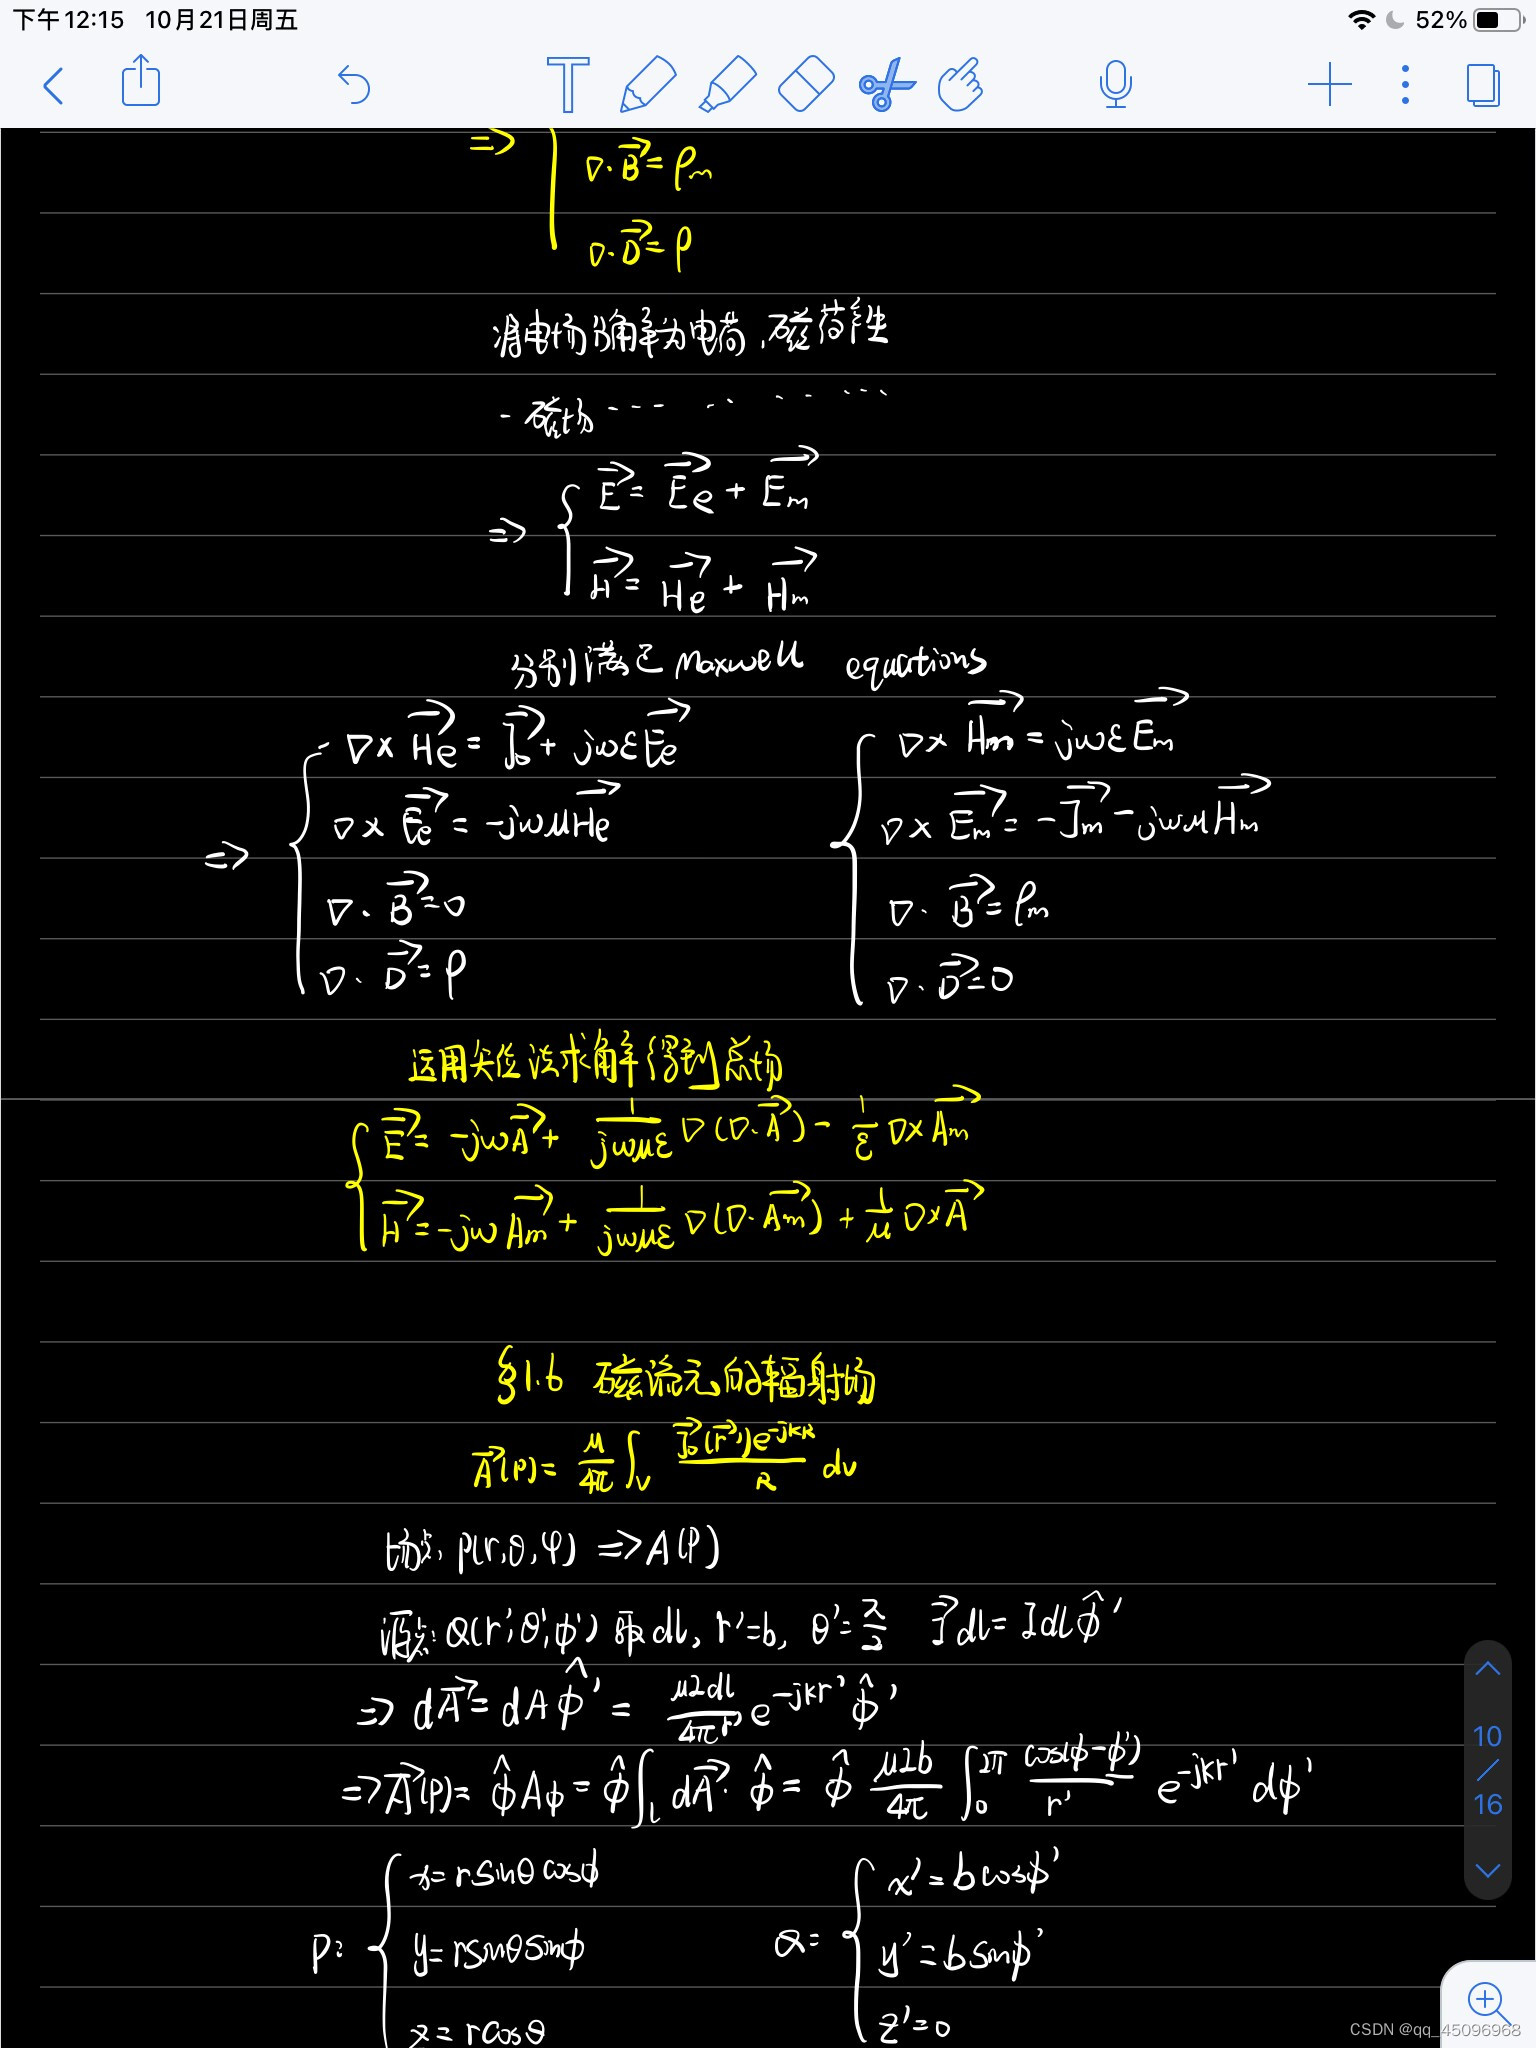 下午12:15 10月21日周五 52%
=>
∇·B⃗=ρm
∇·D⃗=ρ
将电场分解为电荷,磁荷产生
- 磁场 --- -- -- ---
E⃗= E⃗e + E⃗m
=> {
H⃗= H⃗e + H⃗m
分别满足 Maxwell equations
∇× H⃗e = J⃗o + jωε E⃗e ∇× H⃗m = jωε E⃗m
∇× E⃗e = -jωμ H⃗e ∇× E⃗m = -J⃗m - jωμ H⃗m
=>
∇· B⃗=0 ∇· B⃗=ρm
∇· D⃗=ρ ∇· D⃗=0
运用矢位法求解得到总场
E⃗= -jωA⃗ + 1/(jωμε) ∇(∇·A⃗) - 1/ε ∇×A⃗m
H⃗= -jωA⃗m + 1/(jωμε) ∇(∇·A⃗m) + 1/μ ∇×A⃗
§1.6 磁流元的辐射场
A⃗(P)= μ/4π ∫v J⃗o(r⃗')e^-jkR / R dv
场点: P(r,θ,φ) => A(P)
源点: Q(r',θ',ϕ') 取dl, r'=b, θ'=π/2 I⃗dl= Idl ϕ̂'
=> dA⃗= dA ϕ̂' = μIdl/4πr' e^-jkr' ϕ̂'
=> A⃗(P)= ϕ̂Aϕ = ϕ̂∫l dA⃗· ϕ̂ = ϕ̂ μIb/4π ∫0^2π cos(ϕ-ϕ')/r' e^-jkr' dϕ'
10
/
16
x=rsinθcosϕ x'=bcosϕ'
P: y=rsinθsinϕ Q: y'=bsinϕ'
z=rcosθ z'=0
CSDN @qq_45096968